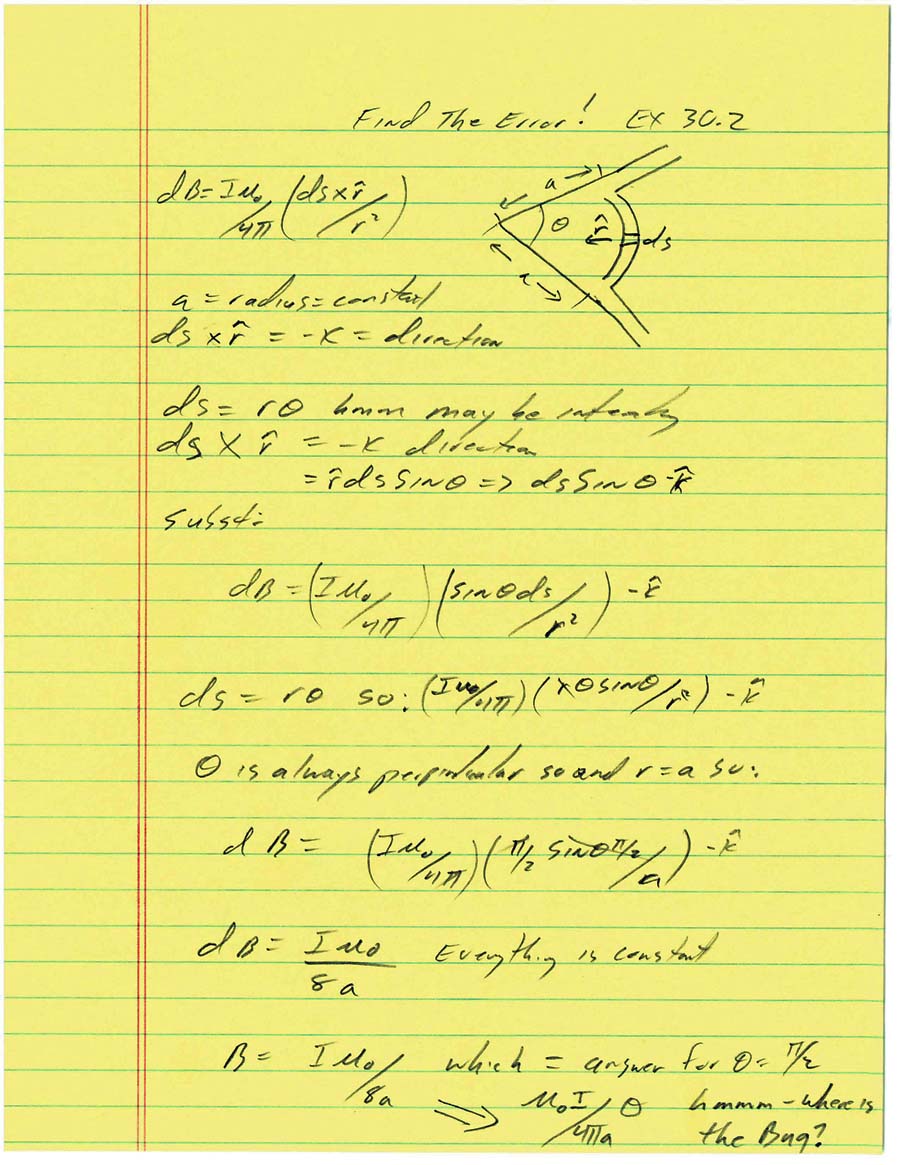 Find The Error! EX 30.2
dB = Iμ₀/4π (ds x r̂/r²)
a
θ
r̂
ds
a = radius = constant
ds x r̂ = -K = direction
ds = rθ hmm may be
ds x r̂ = -K direction
= r̂ ds Sinθ => ds Sin θ -k̂
subst:
dB = (Iμ₀/4π) (sinθ ds/r²) -k̂
ds = rθ so: (Iμ₀/4π) (rθ sinθ/r²) -k̂
θ is always perpindicular so and r = a so:
dB = (Iμ₀/4π) (π/2 sinθ π/2/a) -k̂
dB = Iμ₀/8a Everything is constant
B = Iμ₀/8a which = answer for θ = π/2
=> μ₀I/4πa θ hmmm - where is
the Bug?